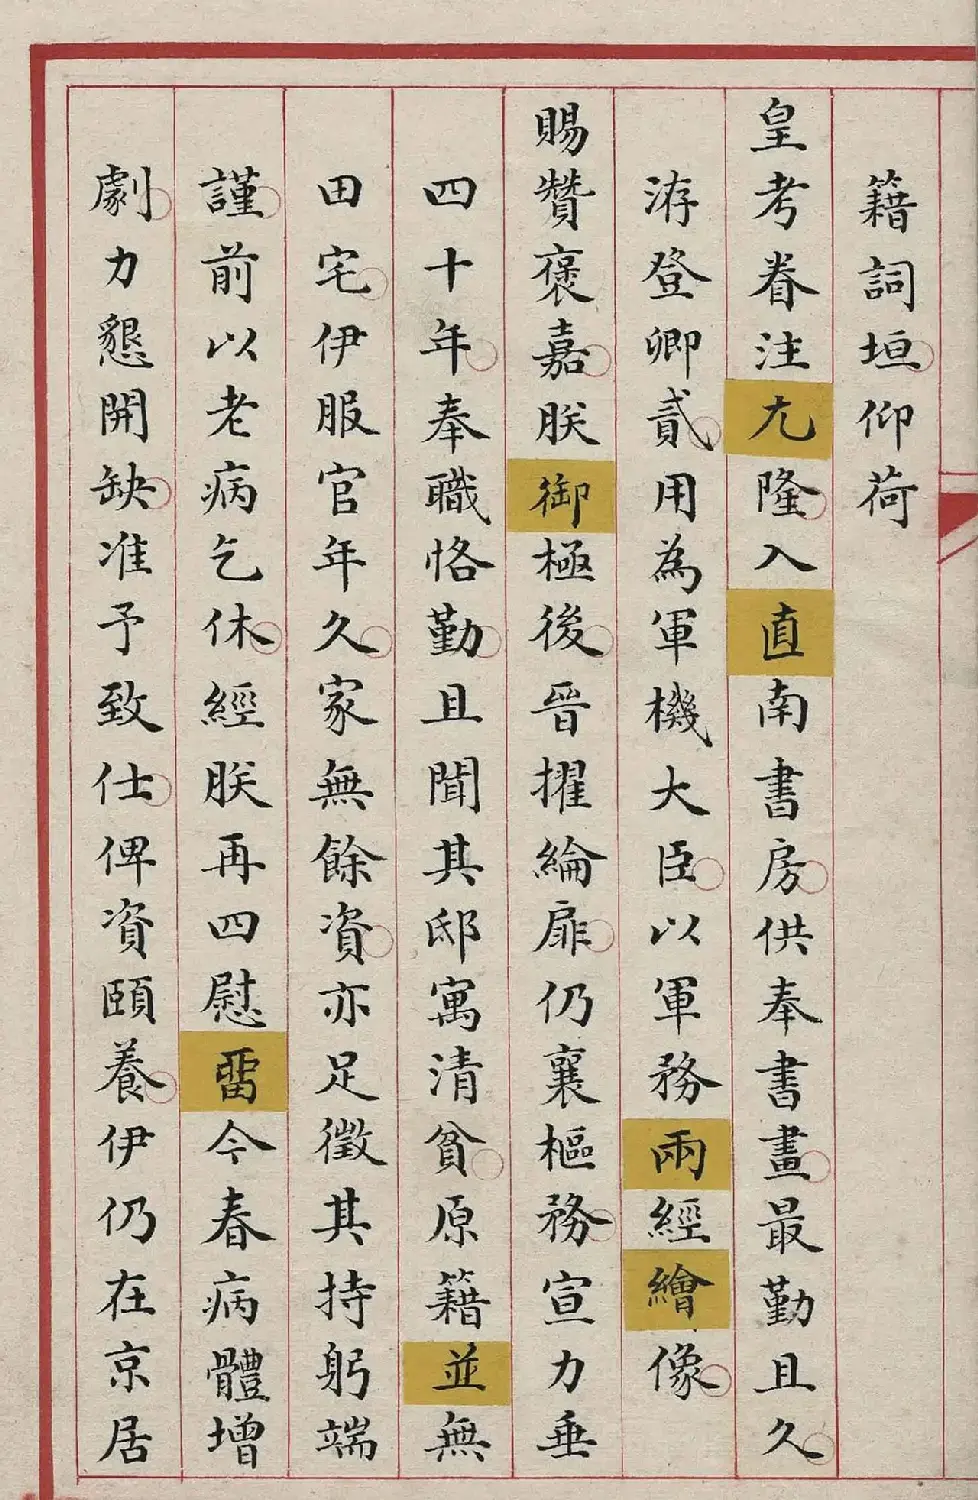 籍詞垣仰荷
皇考眷注尢隆入直南書房供奉書畫最勤且久
洊登卿貳用為軍機大臣以軍務兩經繪像
賜贊褒嘉朕御極後晉擢綸扉仍襄樞務宣力垂
四十年奉職恪勤且聞其邸寓清貧原籍並無
田宅伊服官年久家無餘資亦足徵其持躬端
謹前以老病乞休經朕再四慰畱今春病體增
劇力懇開缺准予致仕俾資頤養伊仍在京居